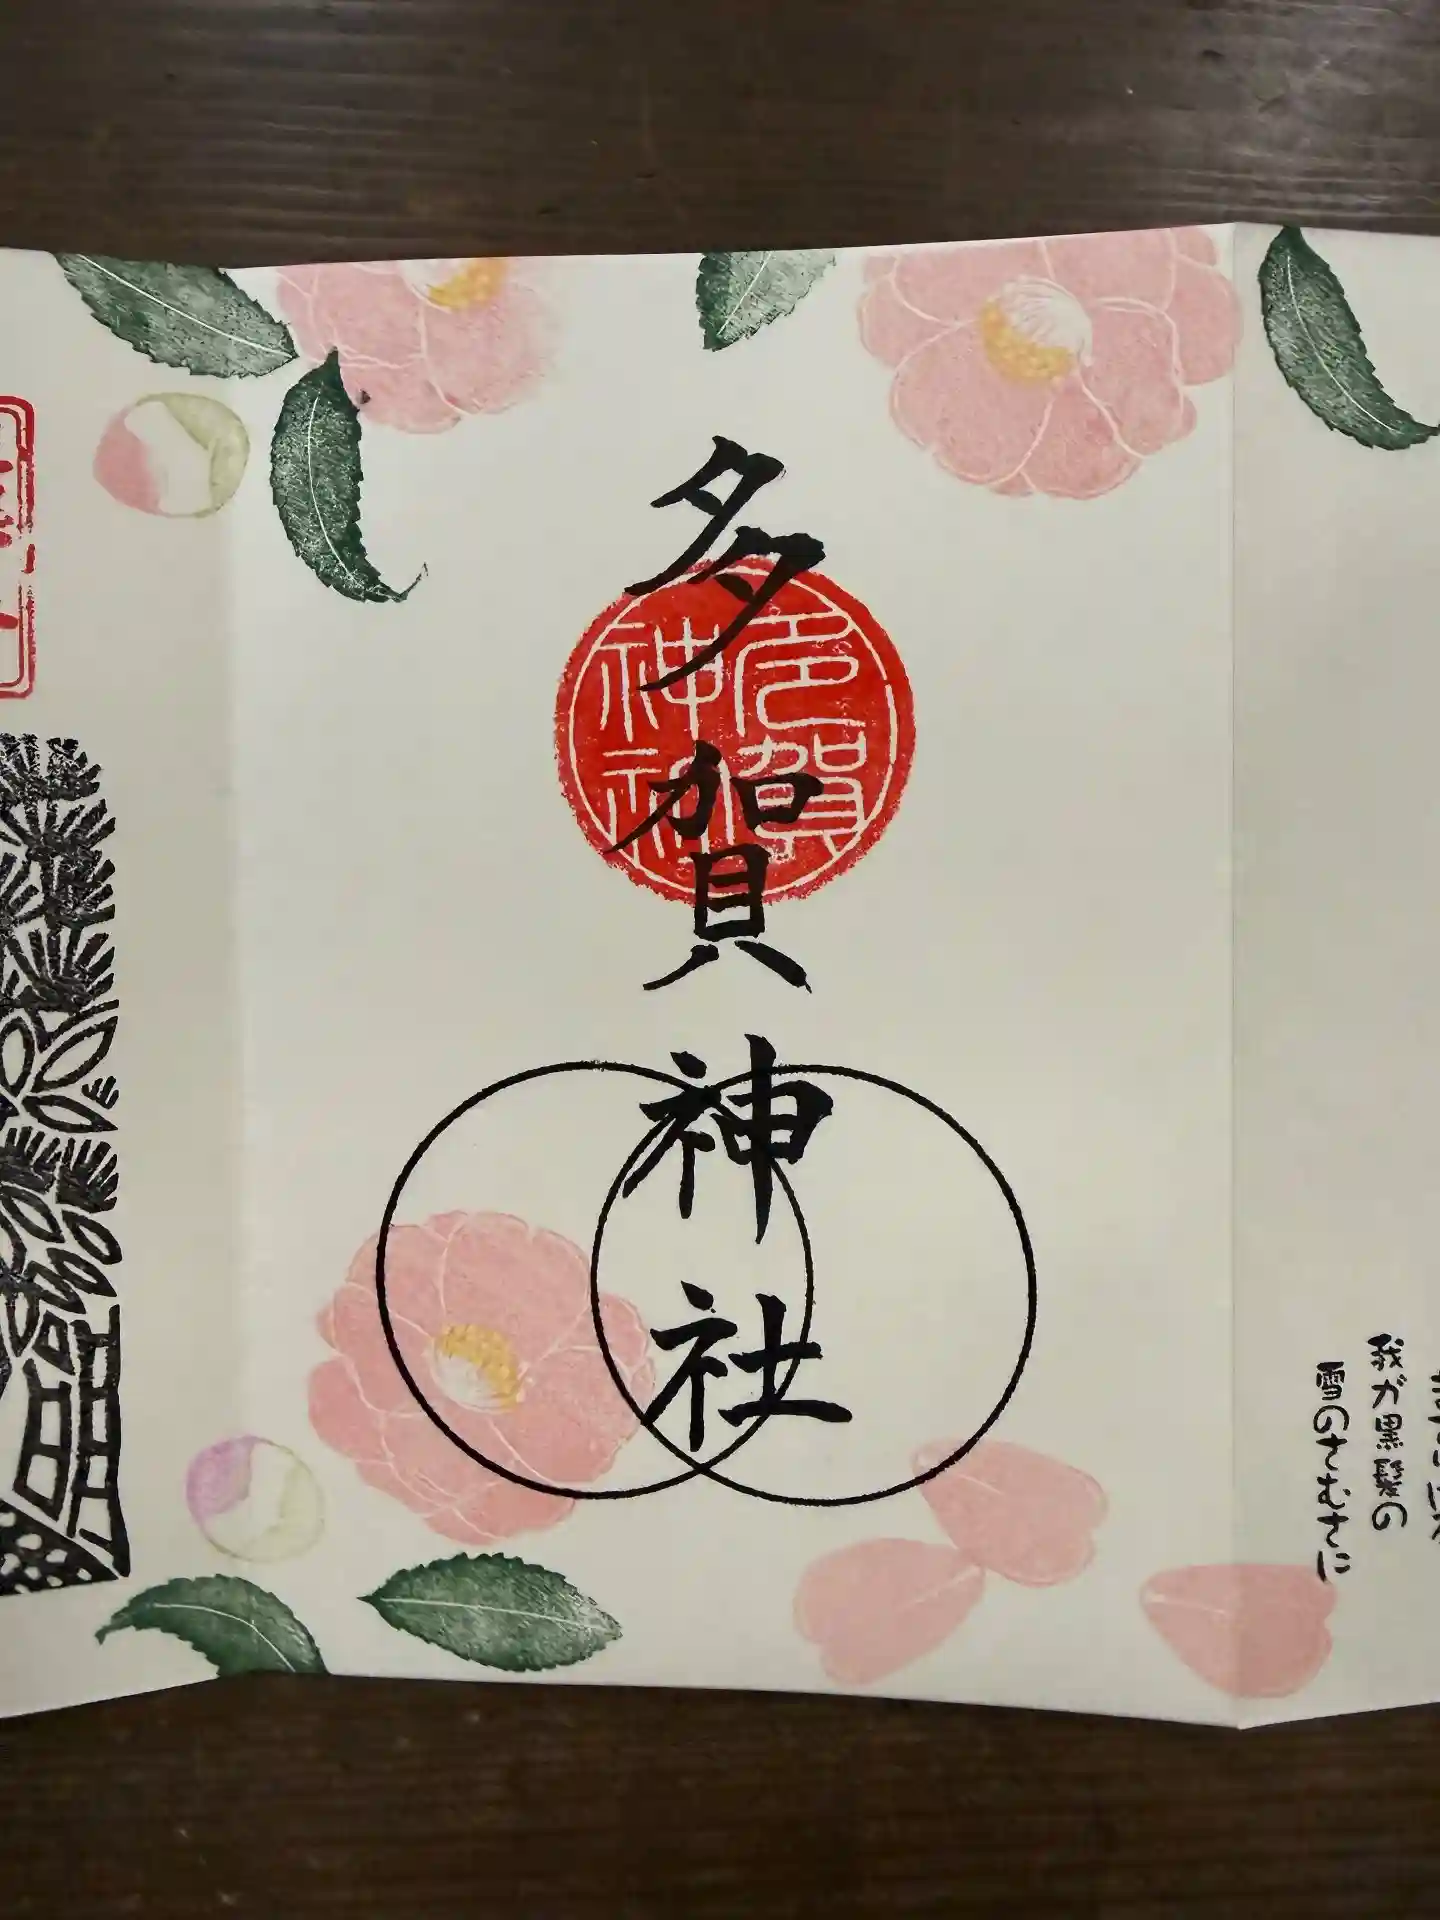 多賀神社
多賀
神社
我が黒髪の
雪のたむたに